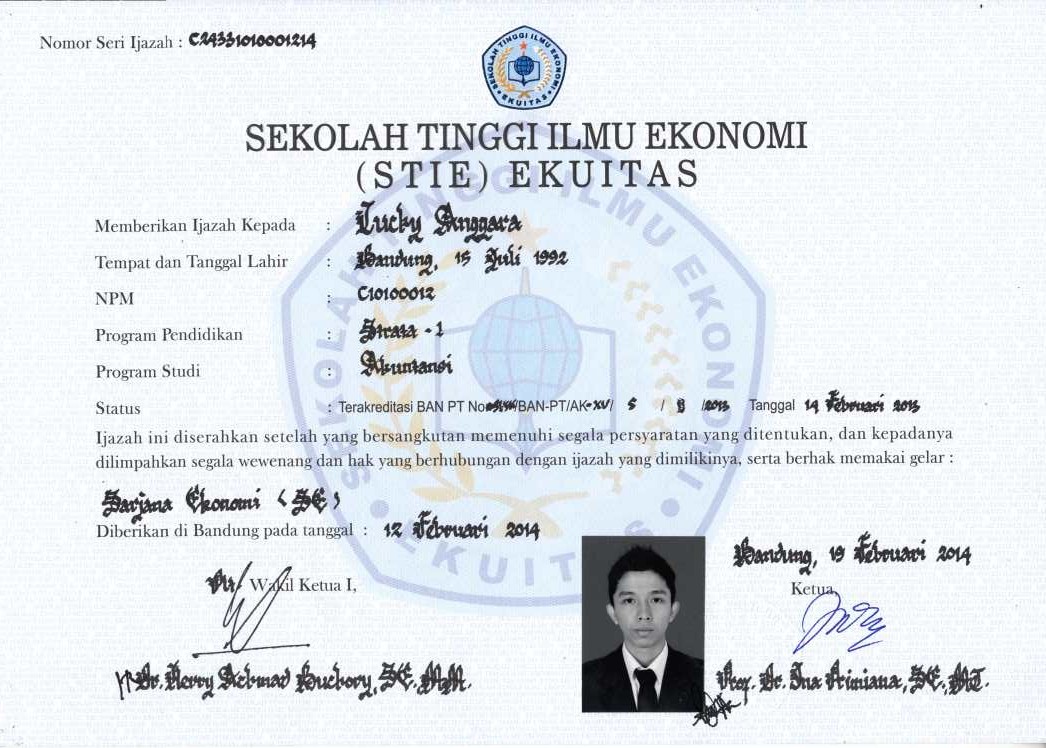 Nomor Seri Ijazah : C24331010001214
SEKOLAH TINGGI ILMU EKONOMI
EKUITAS
SEKOLAH TINGGI ILMU EKONOMI
(STIE) EKUITAS
Memberikan Ijazah Kepada : Lucky Anggara
Tempat dan Tanggal Lahir : Bandung, 15 Juli 1992
NPM : C10100012
Program Pendidikan : Strata - 1
Program Studi : Akuntansi
Status : Terakreditasi BAN PT No /BAN-PT/AK-XV/ S / II /2013 Tanggal 14 Februari 2013
Ijazah ini diserahkan setelah yang bersangkutan memenuhi segala persyaratan yang ditentukan, dan kepadanya
dilimpahkan segala wewenang dan hak yang berhubungan dengan ijazah yang dimilikinya, serta berhak memakai gelar :
Sarjana Ekonomi (SE)
Diberikan di Bandung pada tanggal : 12 Februari 2014
Bandung, 19 Februari 2014
Wakil Ketua I,
Ketua,
Dr. Herry Achmad Buchory, SE, MM.
Prof. Dr. Ina Primiana, SE, MT.